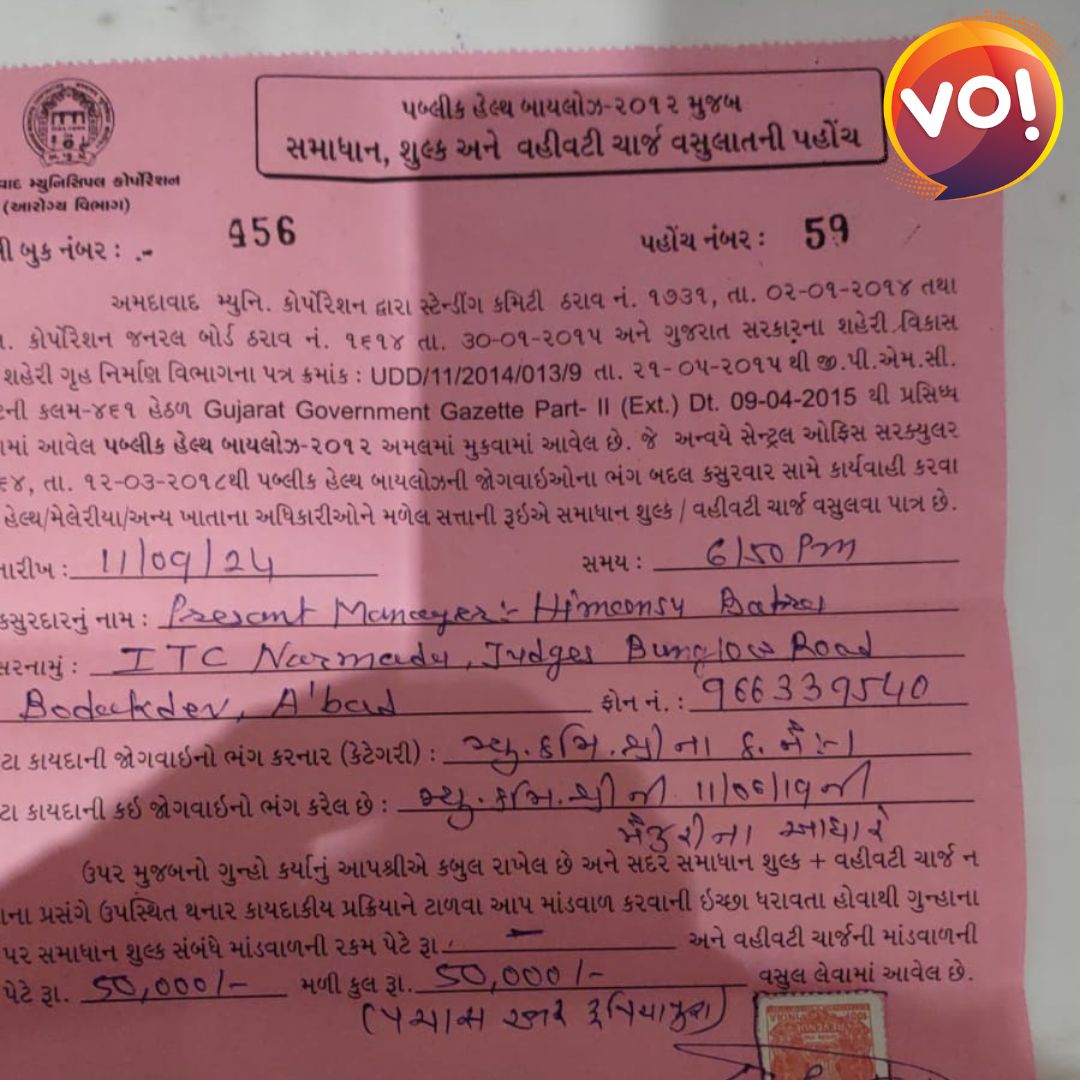 VO!
પબ્લીક હેલ્થ બાયલોઝ-૨૦૧૨ મુજબ
સમાધાન, શુલ્ક અને વહીવટી ચાર્જ વસુલાતની પહોંચ
વાદ મ્યુનિસિપલ કોર્પોરેશન
(આરોગ્ય વિભાગ)
ી બુક નંબર : .- 456 પહોંચ નંબર : 59
અમદાવાદ મ્યુનિ. કોર્પોરેશન દ્વારા સ્ટેન્ડીંગ કમિટી ઠરાવ નં. ૧૭૩૧, તા. ૦૨-૦૧-૨૦૧૪ તથા
. કોર્પોરેશન જનરલ બોર્ડ ઠરાવ નં. ૧૬૧૪ તા. ૩૦-૦૧-૨૦૧૫ અને ગુજરાત સરકારના શહેરી વિકાસ
શહેરી ગૃહ નિર્માણ વિભાગના પત્ર ક્રમાંક : UDD/11/2014/013/9 તા. ૨૧-૦૫-૨૦૧૫ થી જી.પી.એમ.સી.
ની કલમ-૪૬૧ હેઠળ Gujarat Government Gazette Part- II (Ext.) Dt. 09-04-2015 થી પ્રસિધ્ધ
માં આવેલ પબ્લીક હેલ્થ બાયલોઝ-૨૦૧૨ અમલમાં મુકવામાં આવેલ છે. જે અન્વયે સેન્ટ્રલ ઓફિસ સરક્યુલર
૬૪, તા. ૧૨-૦૩-૨૦૧૮થી પબ્લીક હેલ્થ બાયલોઝની જોગવાઇઓના ભંગ બદલ કસુરવાર સામે કાર્યવાહી કરવા
હેલ્થ/મેલેરીયા/અન્ય ખાતાના અધિકારીઓને મળેલ સત્તાની રૂઇએ સમાધાન શુલ્ક / વહીવટી ચાર્જ વસુલવા પાત્ર છે.
તારીખ : 11/09/24 સમય : 6/50 Pm
કસુરદારનું નામ : Presant Manager :- Himansu Batra
સરનામું : ITC Narmada, Judges Bunglow Road
Bodakdev, A'bad ફોન નં. : 966339540
ટા કાયદાની જોગવાઇનો ભંગ કરનાર (કેટેગરી) : મ્યુ. કમિ. શ્રી ના
ટા કાયદાની કઇ જોગવાઇનો ભંગ કરેલ છે : મ્યુ. કમિ. શ્રી ની 11/06/19 ની
મંજુરી ના આધારે
ઉપર મુજબનો ગુન્હો કર્યાનું આપશ્રીએ કબુલ રાખેલ છે અને સદર સમાધાન શુલ્ક + વહીવટી ચાર્જ ન
ના પ્રસંગે ઉપસ્થિત થનાર કાયદાકીય પ્રક્રિયાને ટાળવા આપ માંડવાળ કરવાની ઇચ્છા ધરાવતા હોવાથી ગુન્હાના
પર સમાધાન શુલ્ક સંબંધે માંડવાળની રકમ પેટે રૂા. - અને વહીવટી ચાર્જની માંડવાળની
પેટે રૂા. 50,000/- મળી કુલ રૂા. 50,000/- વસુલ લેવામાં આવેલ છે.
(પચાસ હજાર રૂપિયા પુરા)
REVENUE
INDIA